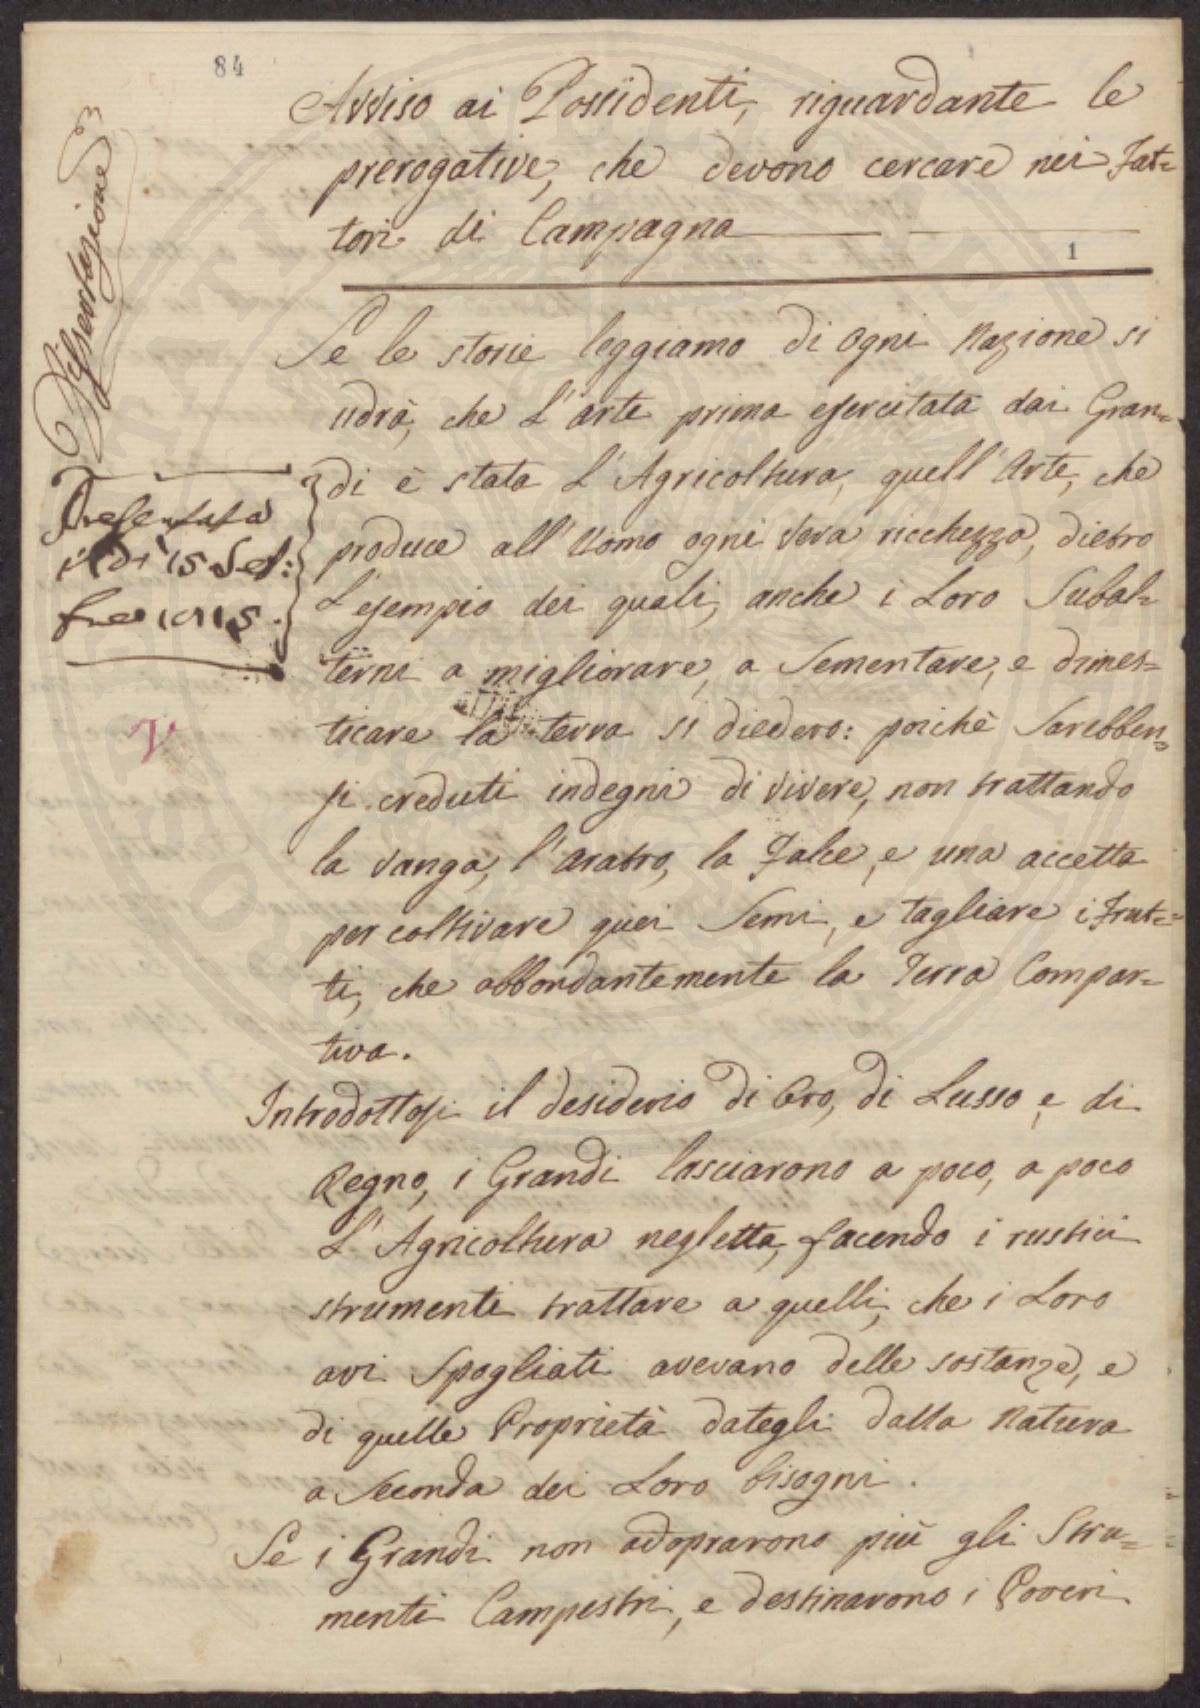 84
Avviso ai Possidenti, riguardante le
prerogative, che devono cercare nei Fat=
tori di Campagna
1
Dissertazione
Se le storie leggiamo di ogni Nazione si
udrà, che L'arte prima esercitata dai Gran=
di è stata L'Agricoltura, quell'Arte, che
produce all'Uomo ogni vera ricchezza, dietro
L'esempio dei quali, anche i Loro Subal=
terni a migliorare, a Sementare, e dimes=
ticare la terra si diedero: poichè Sarebben=
si creduti indegni di vivere, non trattando
la vanga, l'aratro, la Falce, e una accetta
per coltivare quei Semi, e tagliare i Frut=
ti, che abbondantemente la Terra Compar=
tiva.
Presentata
il dì 15 Set:
V
Introdottosi il desiderio di Oro, di Lusso e di
Regno, i Grandi lasciarono a poco, a poco
L'Agricoltura negletta, facendo i rustici
strumenti trattare a quelli, che i Loro
avi Spogliati avevano delle sostanze, e
di quelle Proprietà dategli dalla Natura
a Seconda dei Loro bisogni.
Se i Grandi non adoprarono più gli Stru=
menti Campestri, e destinarono i Poveri